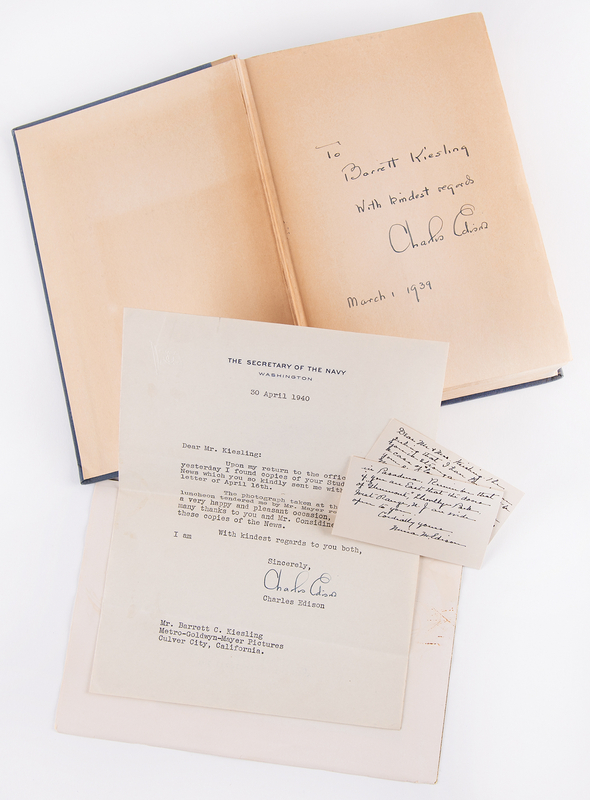 To
Barrett Kiesling
With kindest regards
Charles Edison
March 1 1939
THE SECRETARY OF THE NAVY
WASHINGTON
30 April 1940
Dear Mr. Kiesling:
Upon my return to the offic
yesterday I found copies of your Stud
News which you so kindly sent me with
letter of April 16th.
The photograph taken at th
luncheon tendered me by Mr. Mayer re
a very happy and pleasant occasion,
many thanks to you and Mr. Considine
these copies of the News.
With kindest regards to you both,
I am
Sincerely,
Charles Edison
Charles Edison
Mr. Barrett C. Kiesling
Metro-Goldwyn-Mayer Pictures
Culver City, California.
Dear Mr. & Mrs.
feeling that I have
in Pasadena. Remember that
if you are East that the door
of Glenmont, Llewellyn Park
West Orange, N.J. is wide
open to you.
Cordially yours,
Mina M. Edison